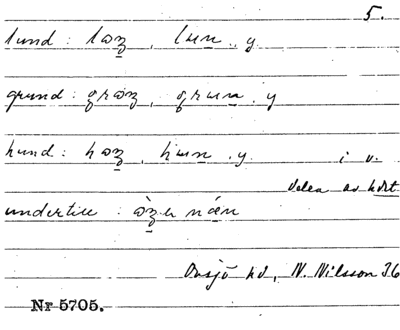 5.
lund: loz, lun, y.
grund: groz, grun, y
hund: hoz, hun, y. i v.
delen av hdrt
undertill: òzu nán
Onsjö hd, N. Nilsson 36
Nr 5705.